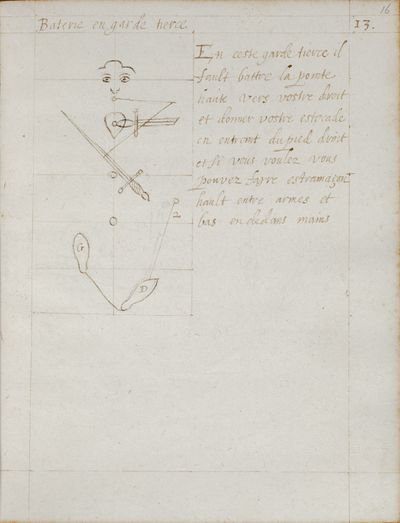 16
Baterie en garde tierce
13.
En ceste garde tierce il
fault battre la pointe
haute vers vostre droit
et donner vostre estocade
en entrant du pied droit
et si vous voulez vous
pouvez faire estramaçon
hault entre armes et
bas en dedans mains
2
G
D